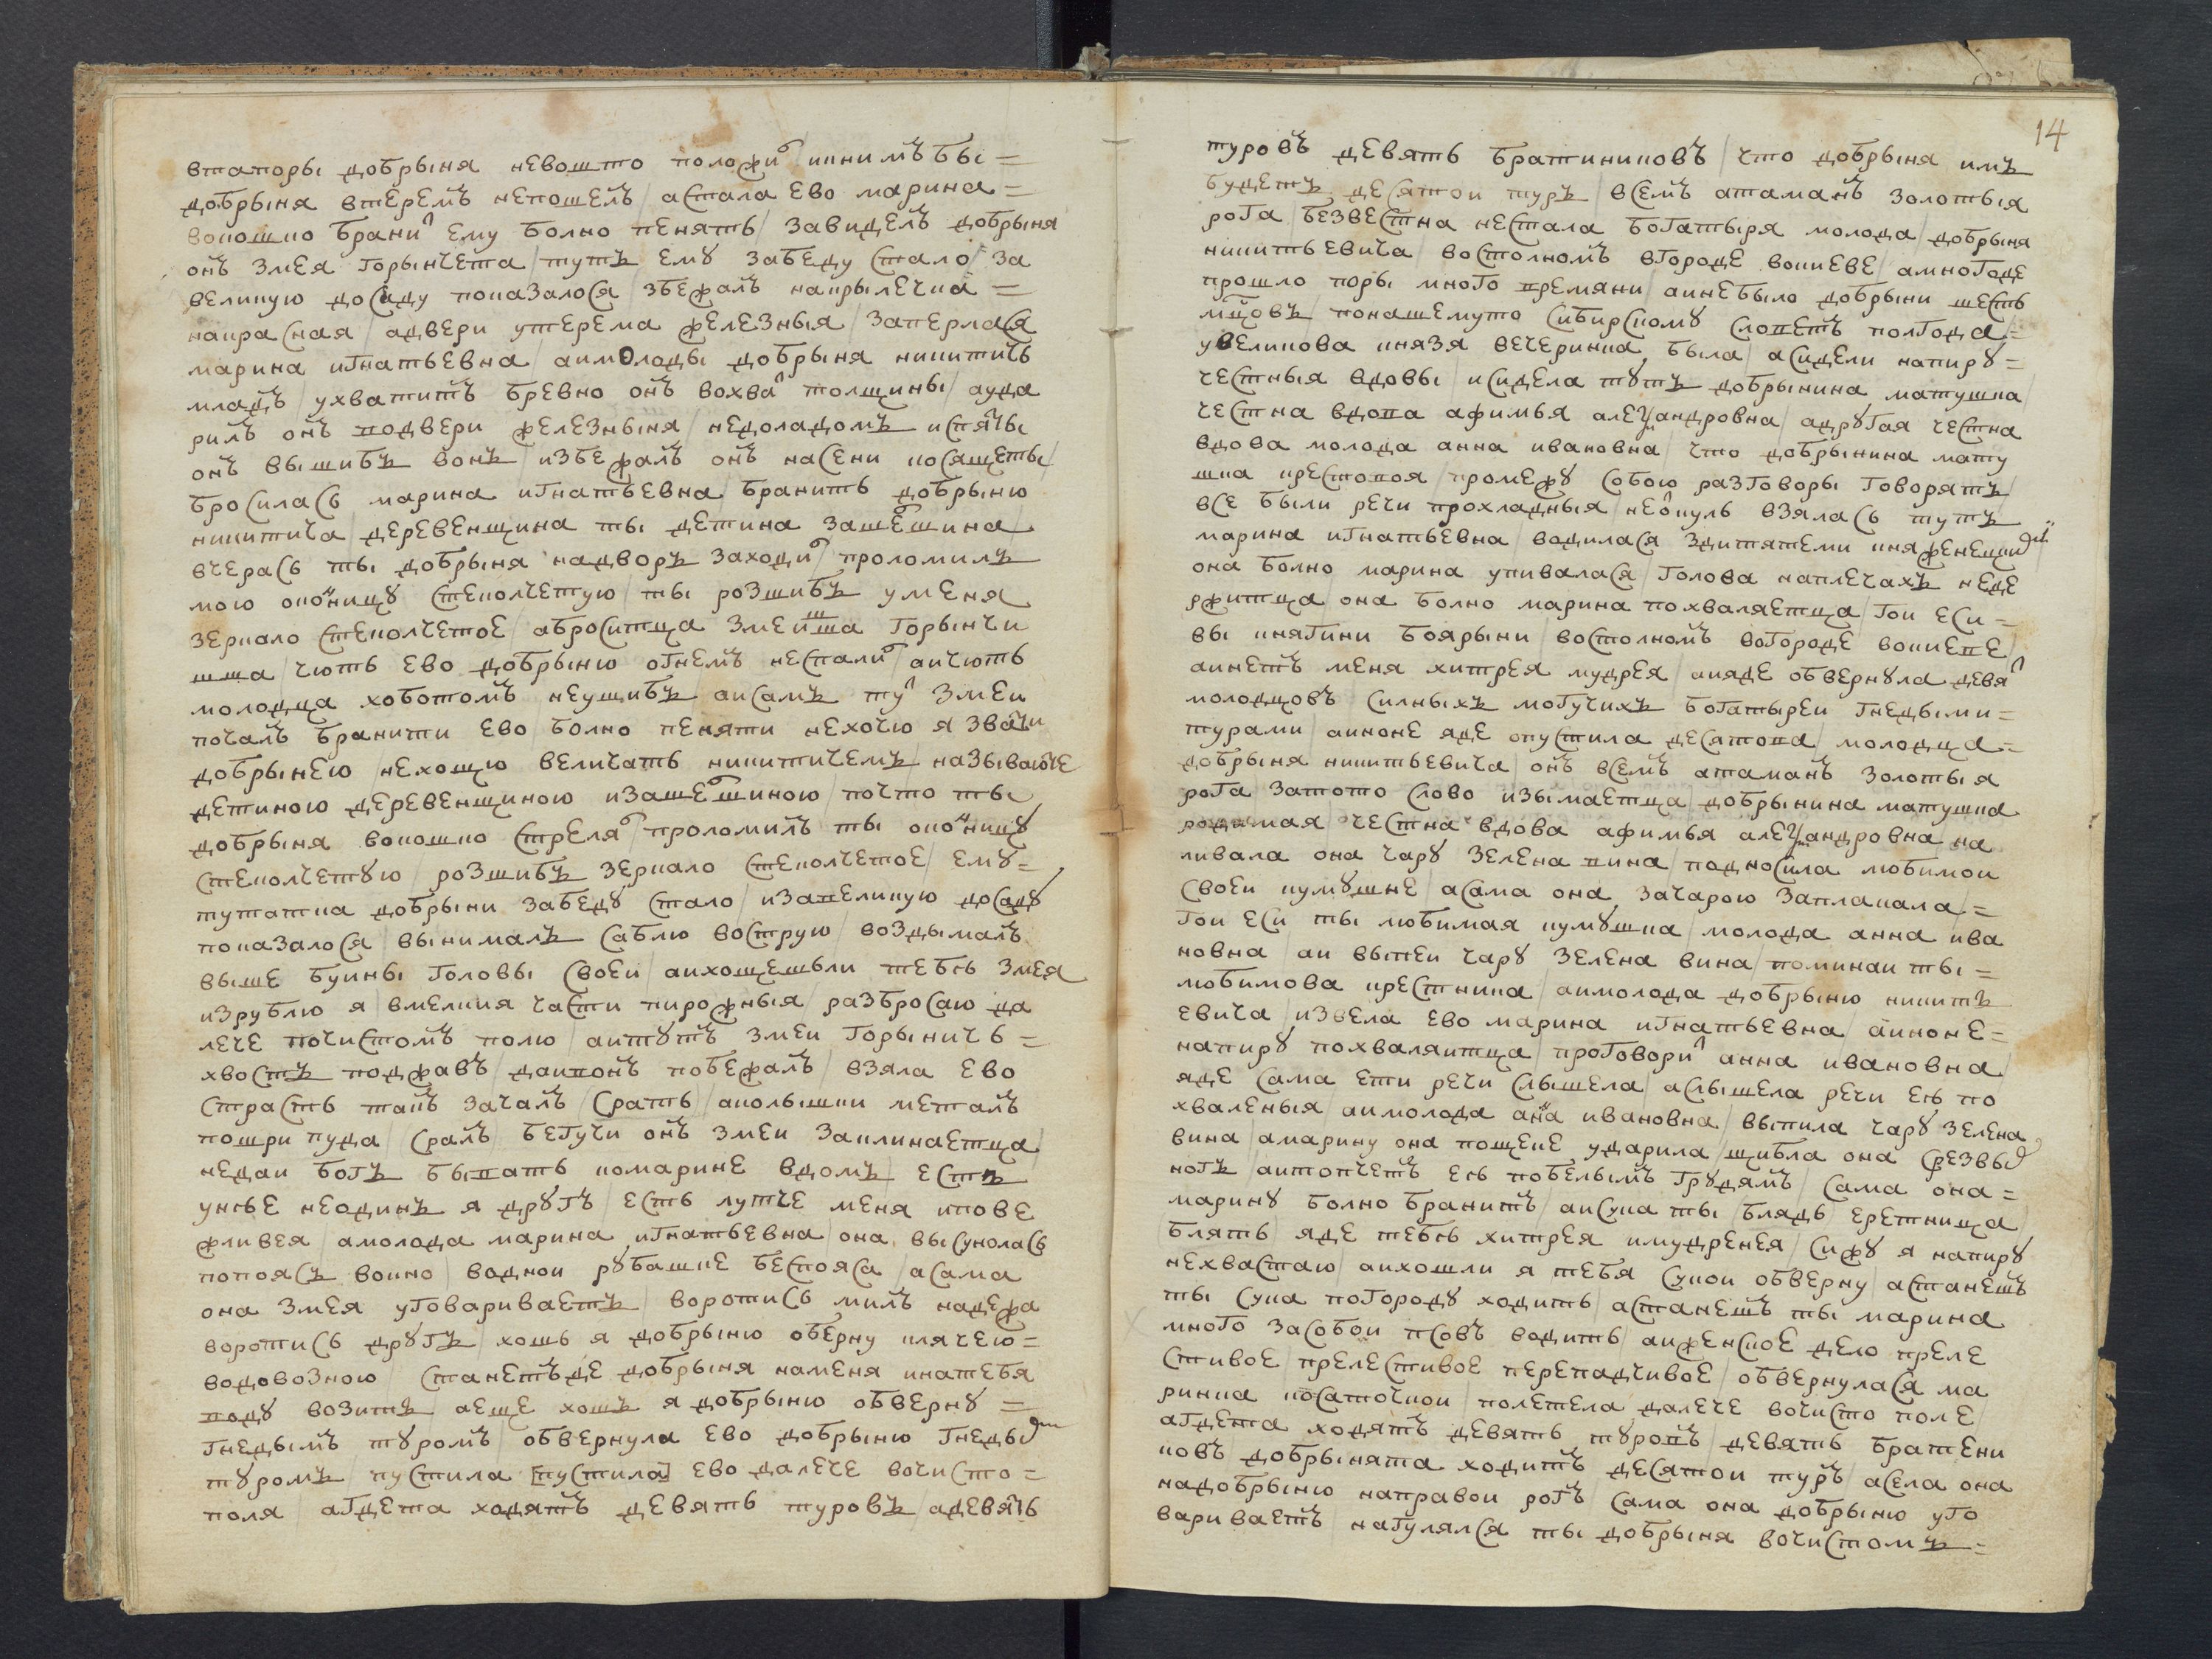 втапоры добрыня невошто положи инимъ бы=
добрыня втеремъ непошелъ / астала ево марина=
вокошко брани ему болно пенять / завиделъ добрыня
онъ змея горынчета / тутъ ему забеду стало / за
великую досаду показалося / збежалъ накрылечка=
накрасная / адвери утерема железныя / заперлася
марина игнатьевна / аимолоды добрыня никитичь
младъ / ухватитъ бревно онъ вохва толщины / ауда
рилъ онъ подвери железныня / недоладомъ испяты
онъ вышибъ вонъ / избежалъ онъ насени косящеты /
бросилась марина игнатьевна бранить добрыню
никитича / деревенщина ты детина зашелшина /
вчерась ты добрыня надворъ заходи / проломилъ
мою оконницу стеколчетую / ты розшибъ уменя
зеркало стеколчетое / аброситца змеиша горынчи
шша / чють ево добрыню огнемъ неспали / аичють
молодца хоботомъ неушибъ аисамъ ту змеи
почалъ бранити ево болно пеняти нехочю я звати
добрынею / нехощю величать никитичемъ / называюте
детиною деревенщиною изашелшиною / почто ты
добрыня вокошко стреля / проломилъ ты оконницу
стеколчетую / розшибъ зеркало стеколчетое / ему=
тутатка добрыни забеду стало / изавеликую досаду
показалося / вынималъ саблю вострую / воздымалъ
выше буины головы своеи / аихощешьли тебѣ змея
изрублю я / вмелкия части пирожныя / разбросаю да
лече почистомъ полю / аитутъ змеи горыничь=
хвостъ поджавъ / даивонъ побежалъ / взяла ево
страсть такъ зачалъ / срать / аколышки металъ
потри пуда / сралъ / бегучи онъ змеи заклинаетца /
недаи богъ бывать комарине вдомъ / есть
унѣе неодинъ я другъ / есть лутче меня иповe
жливея / амолода марина игнатьевна / она высунолась
попоясъ вокно / воднои рубашке беспояса / асама
она змея уговариваетъ / воротись милъ надежа
воротись другъ / хошь я добрыню оберну клячею=
водовозною / станетъде добрыня наменя инатебя
воду возитъ / аеще хошъ я добрыню обверну=
гнедымъ туромъ / обвернула ево добрыню гнеды
туромъ / пустила [пустила] ево далече вочисто=
поля / агдета ходятъ девять туровъ / адевять
14
туровъ девять братиниковъ / что добрыня имъ
будетъ десятои туръ / всемъ атаманъ золотыя
рога / безвестна нестала богатыря молода / добрыня
никитьевича / востолномъ вгороде вокиеве / амногоде
прошло поры много времяни / аинебыло добрыни шесть
мцовъ / понашемуто сибирскому словетъ полгода=
увеликова князя вечеринка была / асидели напиру=
честныя вдовы / исидела тутъ добрынина матушка /
честна вдова афимья алеѯандровна / адругая честна
вдова молода анна ивановна / что добрынина мату
шка крестовоя / промежу собою разговоры говорятъ /
все были речи прохладныя / неокуль взялась тутъ
марина игнатьевна / водилася здитятеми княженецки
она болно марина упивалася / голова наплечахъ неде
ржитца / она болно марина похваляетца / гои еси=
вы княгини боярыни / востолномъ вогороде вокиеве /
аинетъ меня хитрея мудрея / аияде обвернула девя
молодцовъ силныхъ могучихъ богатыреи гнедыми=
турами / аиноне яде опустила десятова / молодца=
добрыня никитьевича / онъ всемъ атаманъ золотыя
рога / затото слово изымаетца / добрынина матушка
родимая / честна вдова афимья алеѯандровна на
ливала она чару зелена вина / подносила любимои
своеи кумушке / асама она зачарою заплакала=
гои еси ты любимая кумушка / молода анна ива
новна / аи выпеи чару зелена вина / поминаи ты=
любимова крестника / аимолода добрыню никить
евича / извела ево марина игнатьевна / аиноне=
напиру похваляитца / проговори анна ивановна
яде сама ети речи слышела / аслышела речи еѣ по
хваленыя / аимолода анна ивановна / выпила чару зелена
вина / амарину она пощеке ударила / щибла она срезвы
ногъ / аитопчетъ еѣ побелымъ грудямъ / сама она=
марину болно бранитъ / аисука ты / блядь еретница
блять / яде тебѣ хитрея имудренея / сижу я напиру
нехвастаю / аихошли я тебя сукои обверну / астанешъ
ты сука погороду ходить / астанешъ ты марина
много засобои псовъ водить / аиженское дело преле
стивое / прелестивое перепадчивое / обвернулася ма
ринка косаточкои / полетела далече вочисто поле
агдета ходятъ девять туровъ / девять братени
ковъ / добрынята ходитъ десятои туръ / асела она
надобрыню направои рогъ / сама она добрыню уго
вариваетъ / нагулялся ты добрыня вочистомъ=